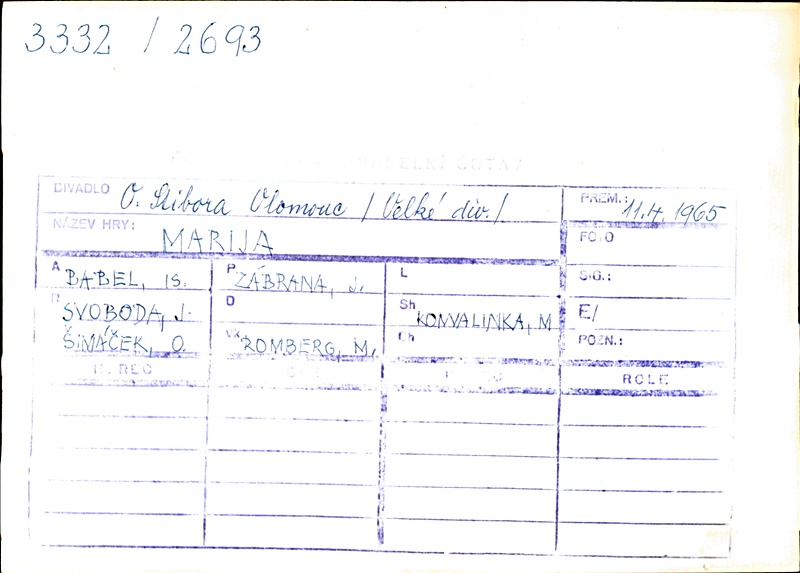 3332 / 2693
DIVADLO O. Stibora Olomouc / Velké div. / PREM.: 11.4. 1965
NÁZEV HRY: MARIJA FOTO
A BABEL, IS. P ZÁBRANA, J. L SIG.:
R SVOBODA, J. D Sh KONVALINKA, M E/
ŠIMÁČEK, O. VK ROMBERG, M. Ch POZN.:
H. REC ROLE